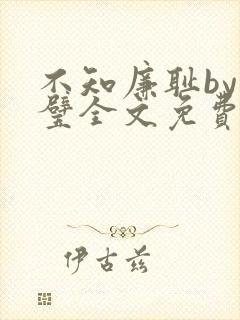 不知廉耻by
璧全文免费
伊古兹